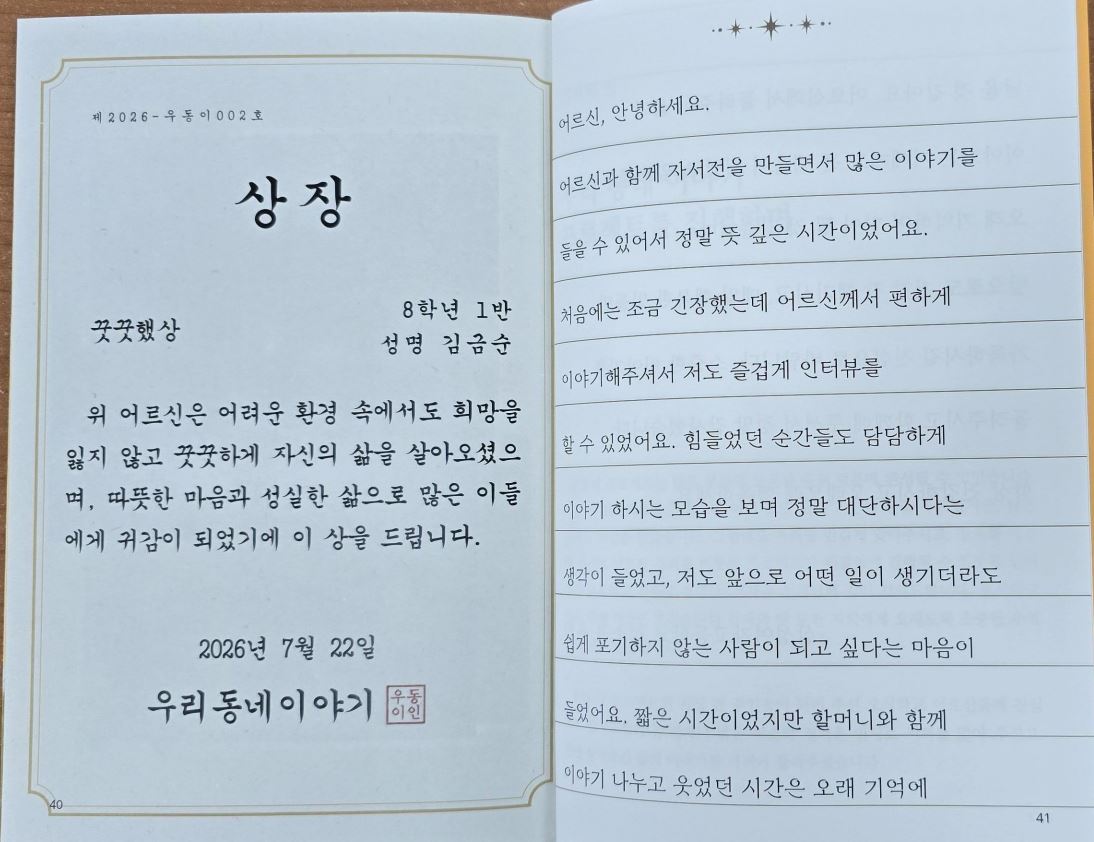 제2026-우동이002호
상장
꿋꿋했상
8학년 1반
성명 김금순
위 어르신은 어려운 환경 속에서도 희망을
잃지 않고 꿋꿋하게 자신의 삶을 살아오셨으
며, 따뜻한 마음과 성실한 삶으로 많은 이들
에게 귀감이 되었기에 이 상을 드립니다.
2026년 7월 22일
우리동네이야기
우동
이인
40
어르신, 안녕하세요.
어르신과 함께 자서전을 만들면서 많은 이야기를
들을 수 있어서 정말 뜻 깊은 시간이었어요.
처음에는 조금 긴장했는데 어르신께서 편하게
이야기해주셔서 저도 즐겁게 인터뷰를
할 수 있었어요. 힘들었던 순간들도 담담하게
이야기 하시는 모습을 보며 정말 대단하시다는
생각이 들었고, 저도 앞으로 어떤 일이 생기더라도
쉽게 포기하지 않는 사람이 되고 싶다는 마음이
들었어요. 짧은 시간이었지만 할머니와 함께
이야기 나누고 웃었던 시간은 오래 기억에
41